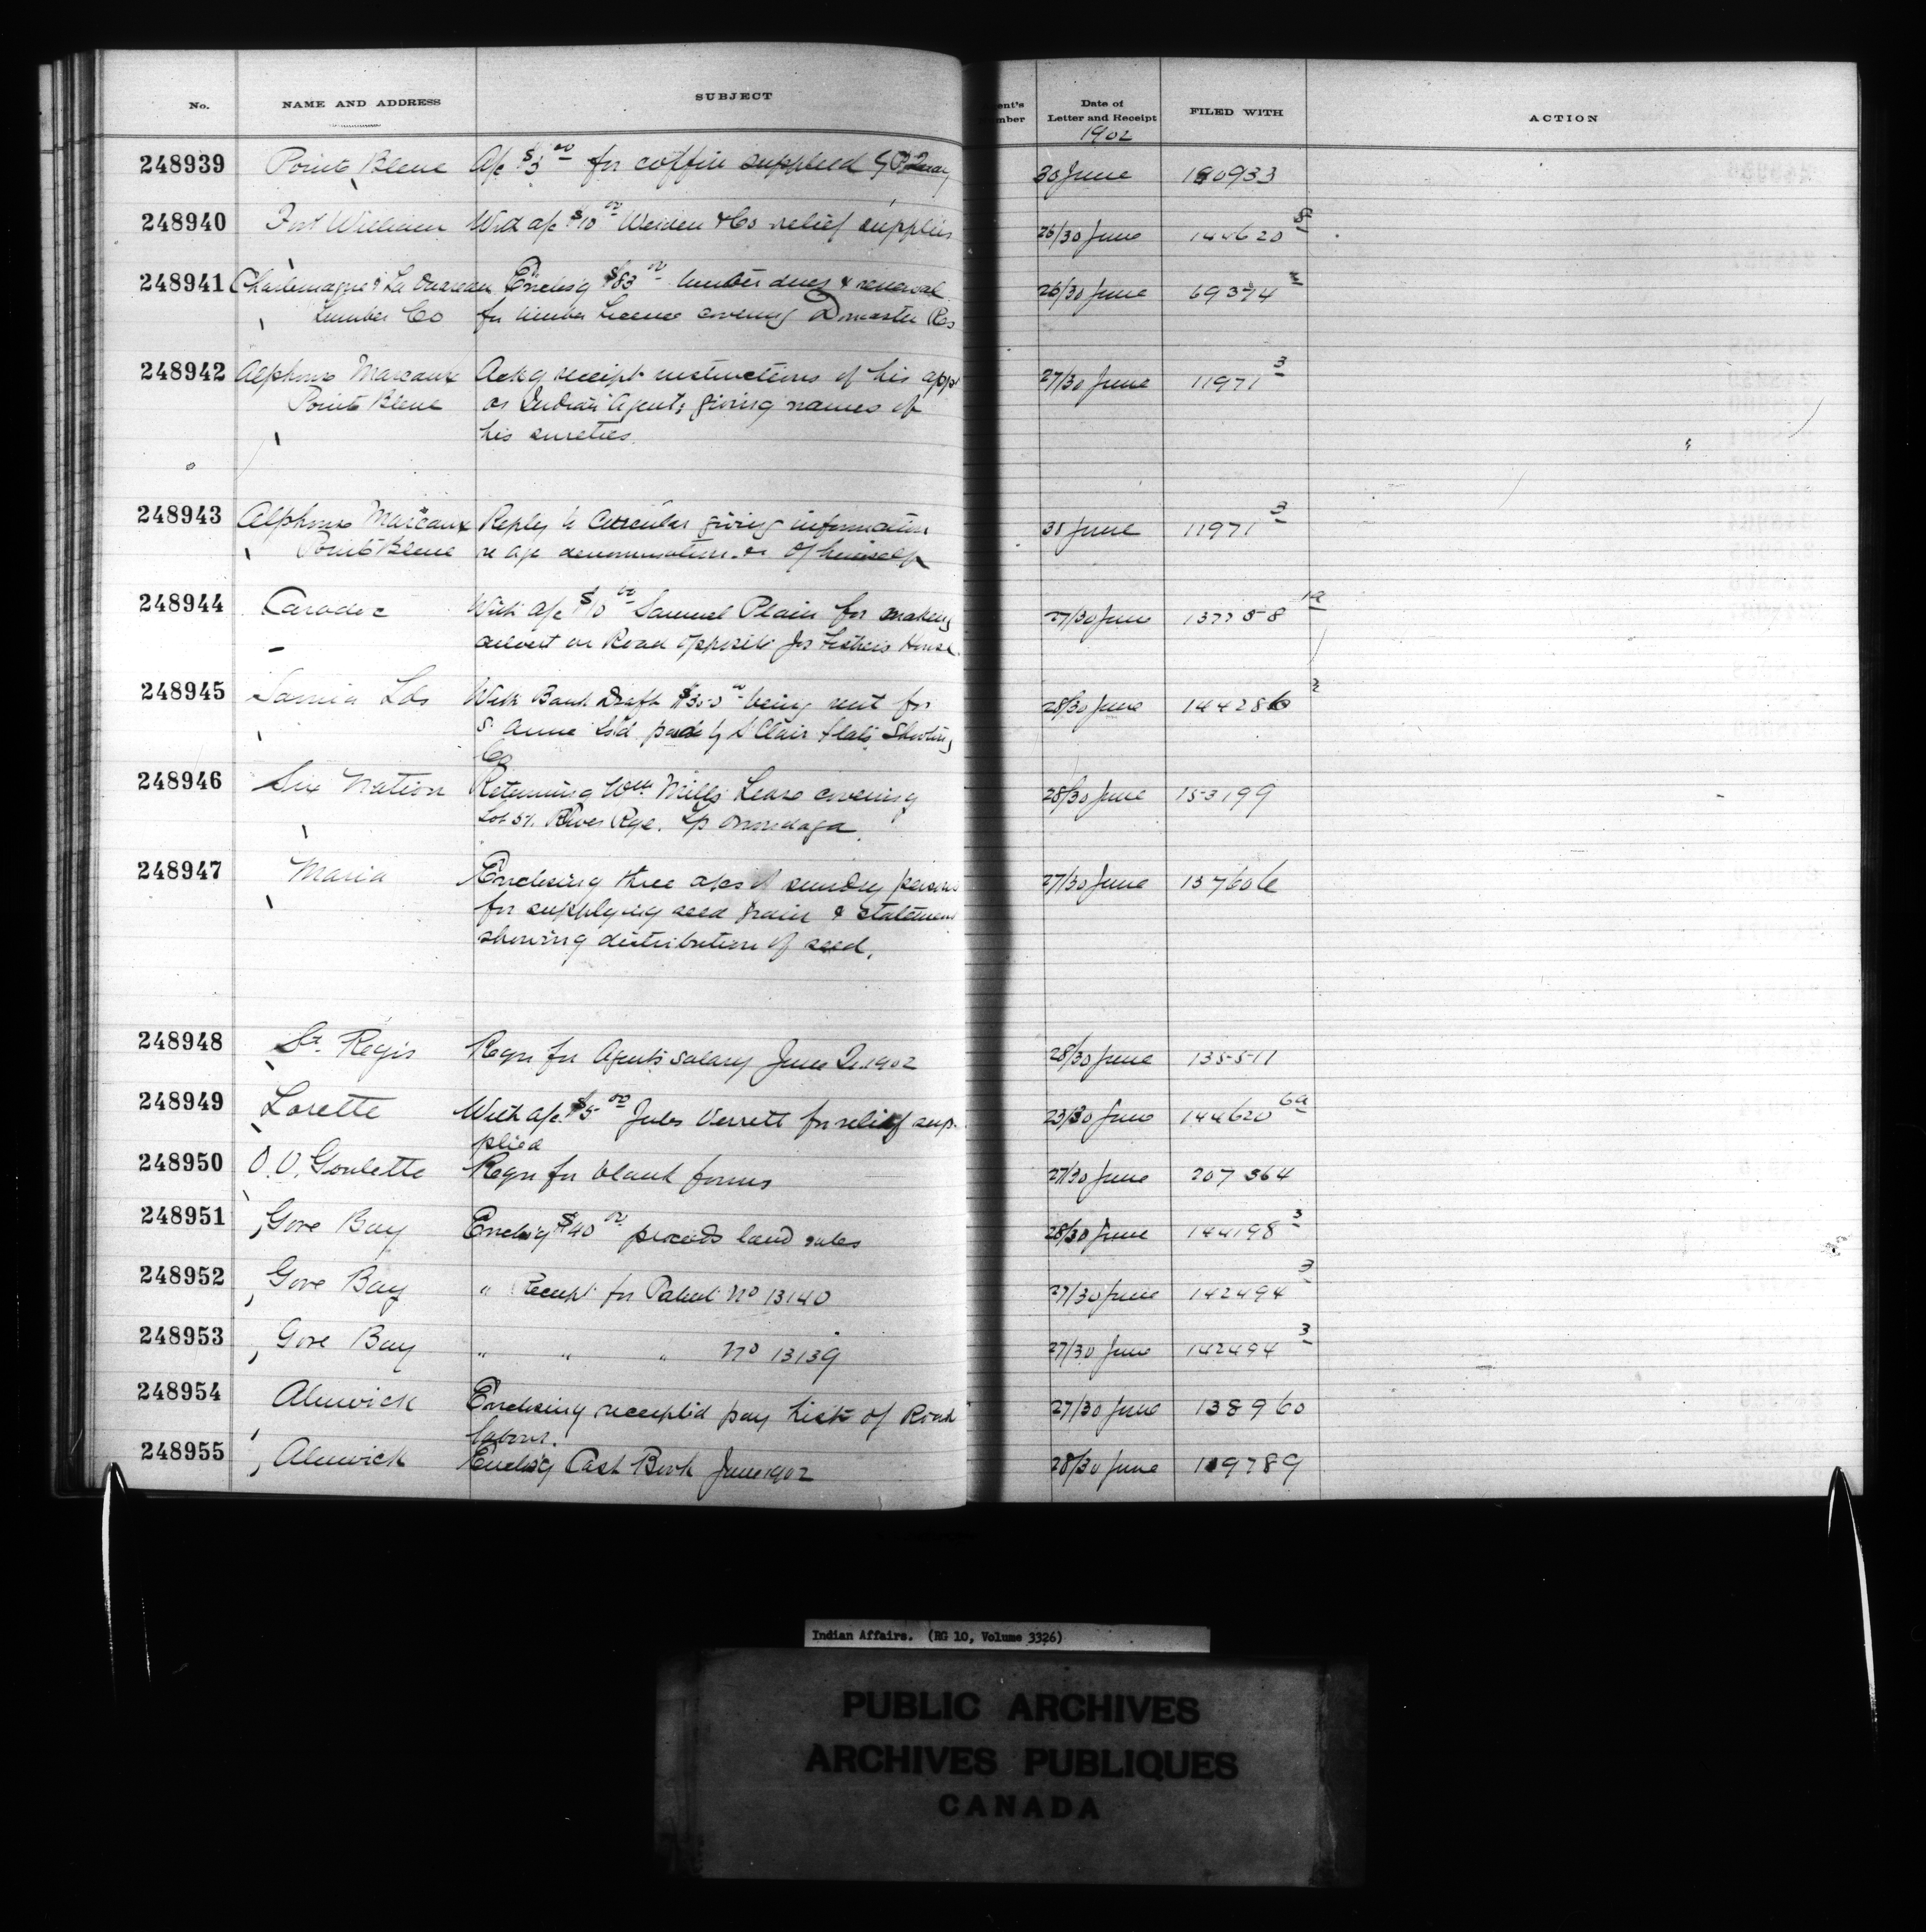 No. NAME AND ADDRESS SUBJECT ent's mber Date of Letter and Receipt FILED WITH ACTION
1902
248939 Point Bleue A/c $3.00 for coffin supplied by 30 June 190933
248940 Fort William With a/c $10.00 Weiden & Co relief supplies 26/30 June 144620 8
248941 Charlemagne & La Ouareau Enclos'g $83.00 timber dues & renewal 26/30 June 69374 2
Lumber Co for timber License covering Doncaster Res
248942 Alphonse Marcoux Ackg receipt instructions of his appt 27/30 June 11971 3
Point Bleue as Indian Agent; giving names of
his sureties.
248943 Alphonse Marcoux Reply to Circular giving information 30 June 11971 3
Point Bleue re age denomination &c of himself
248944 Caradoc With a/c $10.00 Samuel Plain for making 27/30 June 137758 1a
culvert on Road opposite Jos Fishers House.
248945 Sarnia Lds With Bank Draft $300.00 being rent for 28/30 June 144286 2
St Anne Isld. paid by St Clair Flats Shooting
Co
248946 Six Nation Returning Wm Mills Lease covering 28/30 June 153199
Lot 57. River Rge. Tp Onondaga.
248947 Maria Enclosing three a/cs of sundry persons 27/30 June 137606
for supplying seed grain & statement
showing distribution of seed.
248948 St. Regis Reqn for Agent's salary June Qr. 1902 28/30 June 135511
248949 Lorette With a/c $5.00 Jules Verrett for relief sup- 23/30 June 144620 6a
plied
248950 O. V. Goulette Reqn for blank forms 27/30 June 207364
248951 Gore Bay Enclos'g $40.00 proceeds land sales 28/30 June 144198 3
248952 Gore Bay " Receipt for Patent No 13140 27/30 June 142494 3
248953 Gore Bay " " " No 13139 27/30 June 142494 3
248954 Alnwick Enclosing receipted pay List of Road 27/30 June 138960
labour.
248955 Alnwick Enclos'g Cash Book June 1902 28/30 June 119789
Indian Affairs. (RG 10, Volume 3326)
PUBLIC ARCHIVES
ARCHIVES PUBLIQUES
CANADA